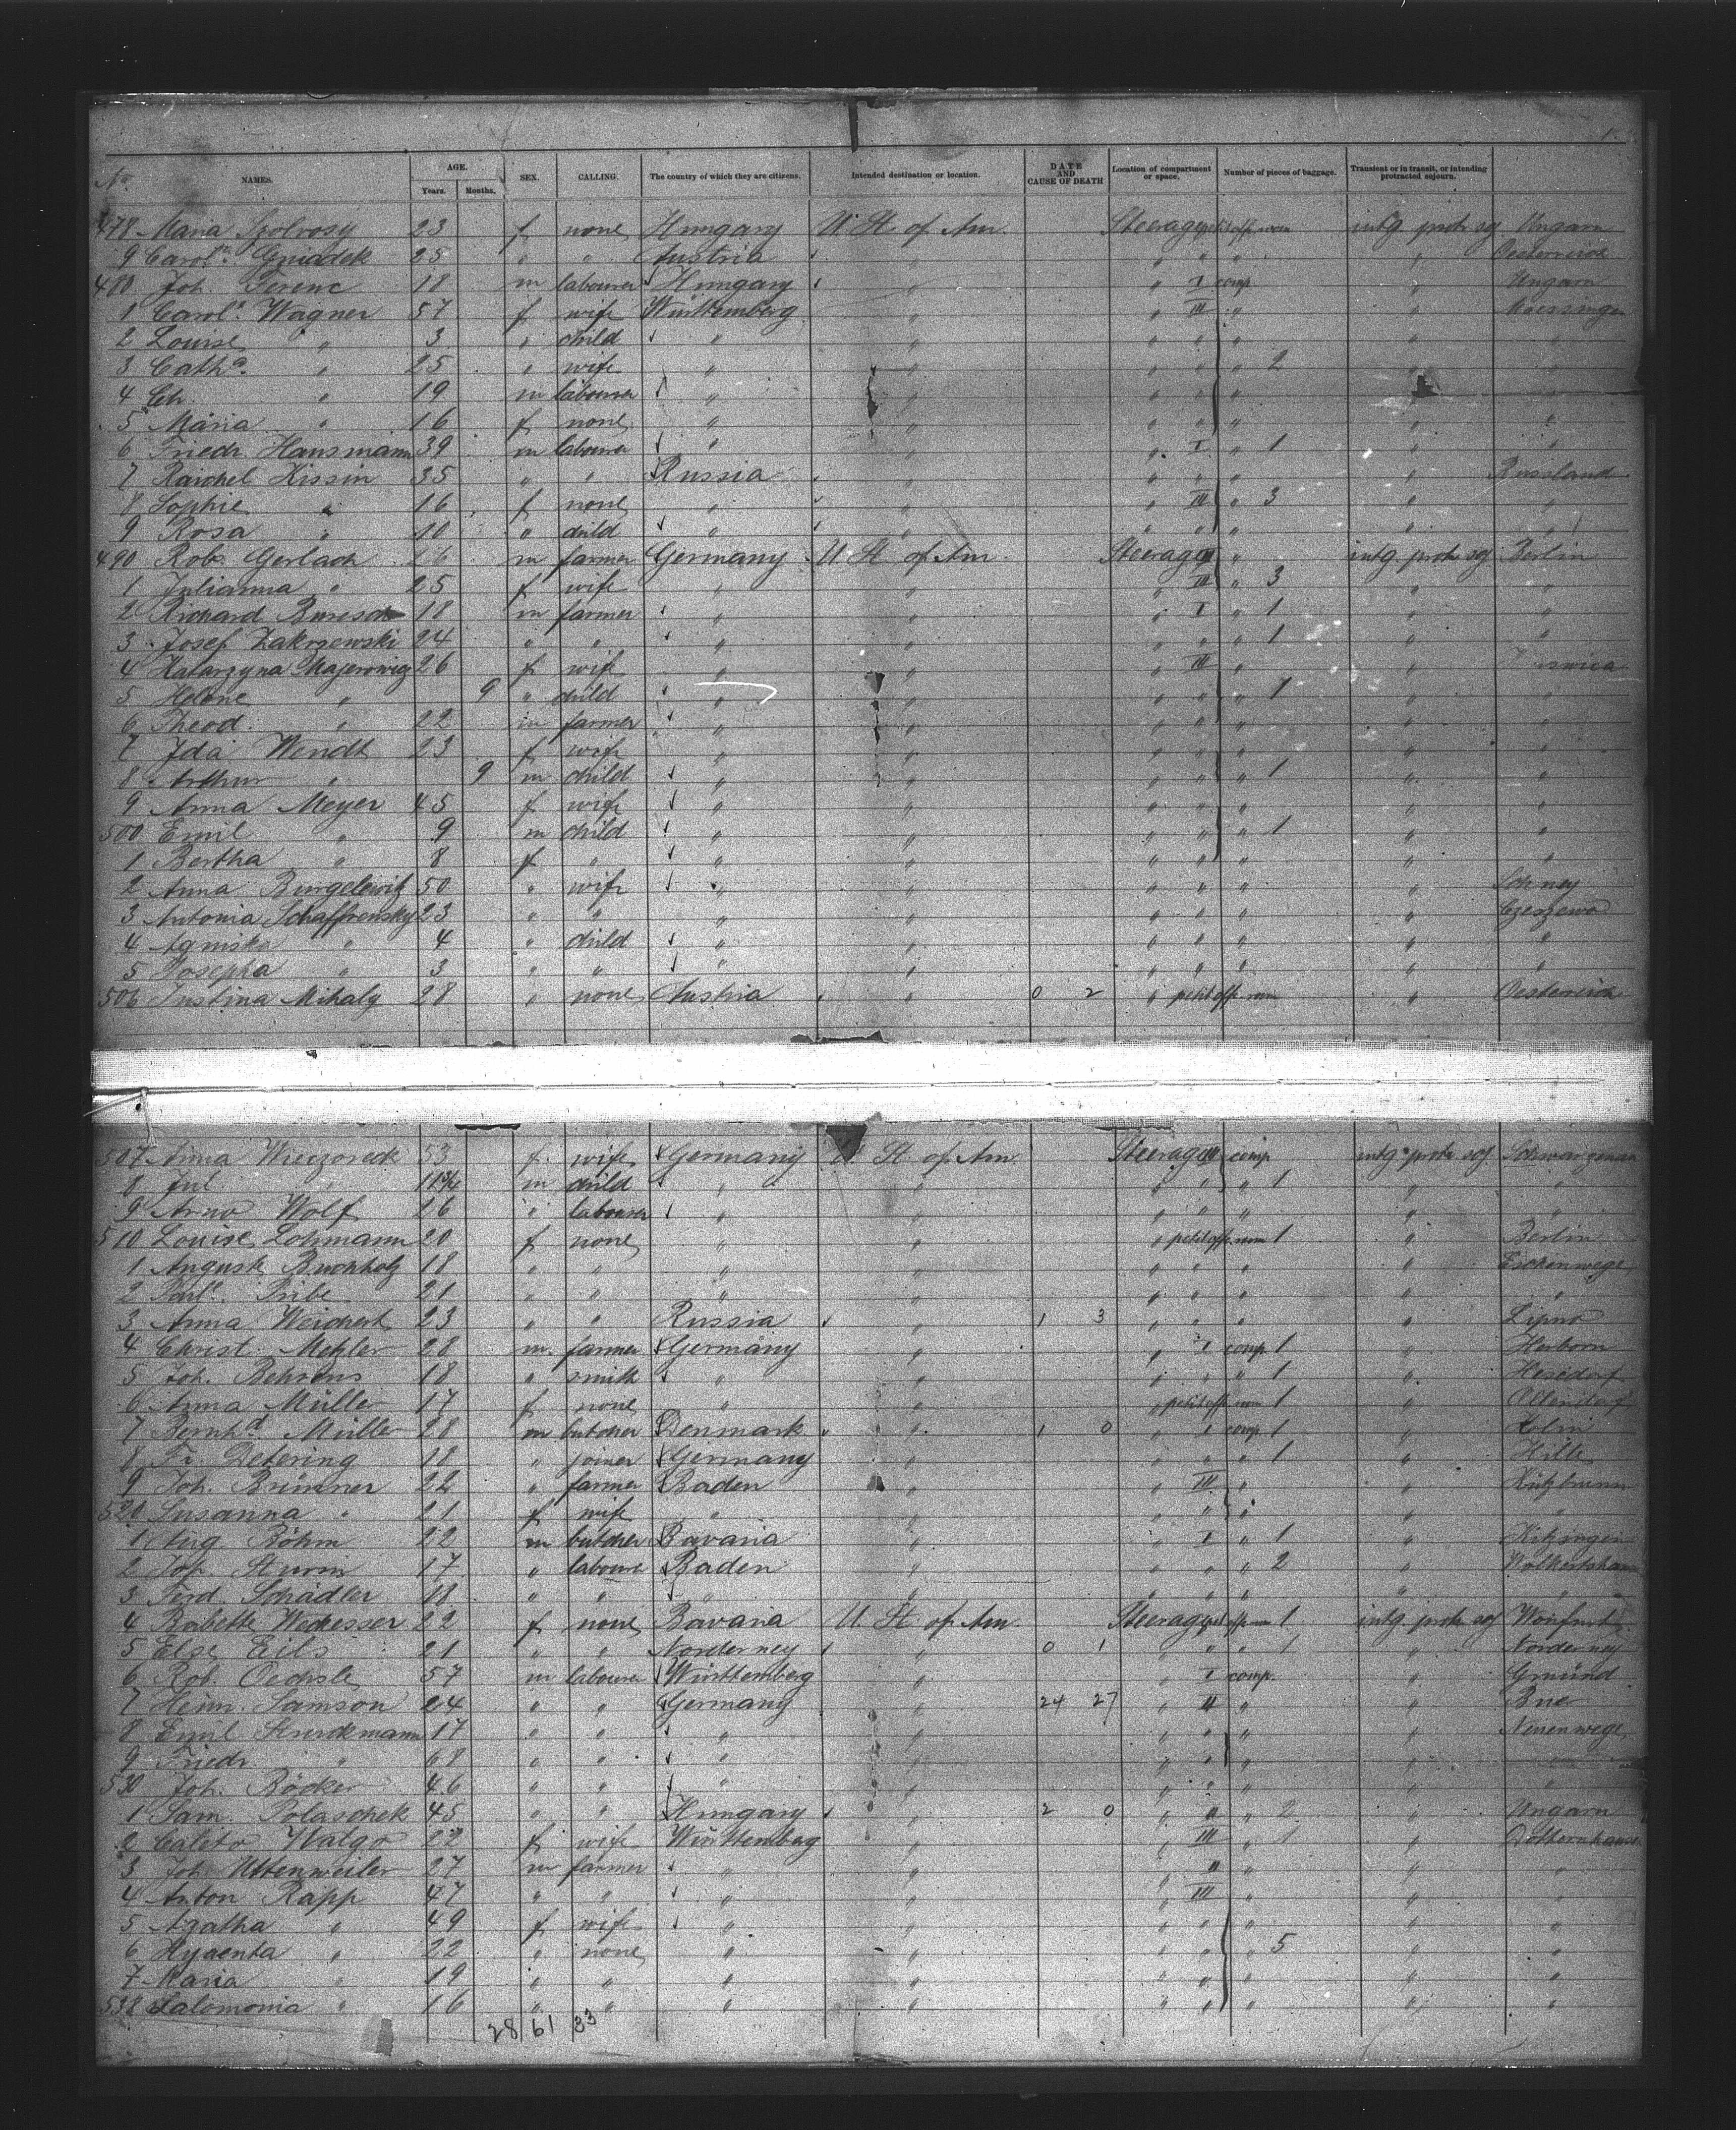 No. NAMES. AGE. Years. Months. SEX. CALLING. The country of which they are citizens. Intended destination or location. DATE AND CAUSE OF DEATH Location of compartment or space. Number of pieces of baggage. Transient or in transit, or intending protracted sojourn.
478 Maria Szolvosy 23 f none Hungary U. St. of Am Steerage petit off room intg protr soj Ungarn
9 Carol.ª Gniadek 25 " " Austria " " " " " Oesterreich
480 Joh. Ferenc 18 m labourer Hungary " " I comp " Ungarn
1 Carol.ª Wagner 57 f wife Württemberg " " III " "
2 Louise " 3 " child " " " " " " "
3 Cathª " 25 " wife " " " " " 2 "
4 Ch. " 19 m labourer " " " " " "
5 Maria " 16 f none " " " " " " "
6 Friedr Hansmann 39 m labourer " " " I " 1 " "
7 Raichel Kissin 35 " " Russia " " " " " Russland
8 Sophie " 16 f none " " " III " 3 " "
9 Rosa " 10 " child " " " " " " "
490 Rob. Gerlach 26 m farmer Germany U. St. of Am Steerage " intg. protr soj Berlin
1 Julianna " 25 f wife " " " III " 3 " "
2 Richard Buresch 18 m farmer " " " I " 1 " "
3 Josef Zakrzewski 24 " " " " " " " 1 " "
4 Katarzyna Majerowicz 26 f wife " " " III " "
5 Helene " 9 " child " " " " " 1 " "
6 Theod. " 22 m farmer " " " " " " "
7 Ida Wendt 23 f wife " " " " " " "
8 Arthur " 9 m child " " " " " 1 " "
9 Anna Meyer 45 f wife " " " " " " "
500 Emil " 9 m child " " " " " 1 " "
1 Bertha " 8 f " " " " " " "
2 Anna Burgelewitz 50 " wife " " " " " "
3 Antonia Schaffrensky 23 " " " " " " " " Czeszewo
4 Agniska " 4 " child " " " " " " "
5 Josepha " 3 " " " " " " " " "
506 Justina Mihaly 28 " none Austria " 0 2 " petit off room " Oesterreich
507 Anna Wieczoreck 53 f. wife Germany U. St of Am. Steerage III comp intg protr soj
8 Jul " 11 m child " " " " " 1 " "
9 Arno Wolf 26 " labourer " " " " " " "
510 Louise Lohmann 20 f none " " " petit off room 1 " Berlin
1 August Buchholz 18 " " " " " " " "
2 Paulª. Pribe 21 " " " " " " " " "
3 Anna Weichert 23 " " Russia " 1 3 " " " " Lipno
4 Christ. Metzler 28 m. farmer Germany " " I comp 1 " Herborn
5 Joh. Behrens 18 " smith " " " " " 1 " Hesedorf
6 Anna Müller 17 f none " " " petit off room 1 " Ottendorf
7 Bernhd Müller 28 m butcher Denmark " 1 0 " I comp 1 "
8 Fr. Detering 18 " joiner Germany " " " " 1 " Hille
9 Joh. Brünner 22 " farmer Baden " " III " " Kützbrunn
520 Susanna " 21 f wife " " " " " " "
1 Aug. Böhm 22 m butcher Bavaria " " I " 1 " Kitzingen
2 Jos. Sturm 17 " labourer Baden " " " " 2 "
3 Ferd. Schädler 18 " " " " " " " " "
4 Babette Wedesser 22 f none Bavaria U. St of Am. Steerage petit off room 1 intg. protr soj Wonfurt
5 Else Eils 21 " " Norderney " 0 1 " " " 1 " Norderney
6 Rob. Oechsle 57 m labourer Württemberg " " I comp. " Gmünd
7 Heinr. Samson 24 " " Germany " 24 27 " II " " Bue
8 Emil Struckmann 17 " " " " " " " " Neuenwege
9 Friedr. " 68 " " " " " " " "
530 Joh. Böcker 46 " " " " " " " " "
1 Sam. Polaschek 45 " " Hungary " 2 0 " II " 2 " Ungarn
2 Caleto Walgo 22 f wife Württemberg " " III " 1 " Dotternhausen
3 Joh Uttenweiler 27 m farmer " " " II " " "
4 Anton Rapp 47 " " " " " III " " "
5 Agatha " 49 f wife " " " " " " "
6 Hyacinta " 22 " none " " " " " 5 " "
7 Maria " 19 " " " " " " " " "
538 Salomonia " 16 " " " " " " " " "
28 61 33